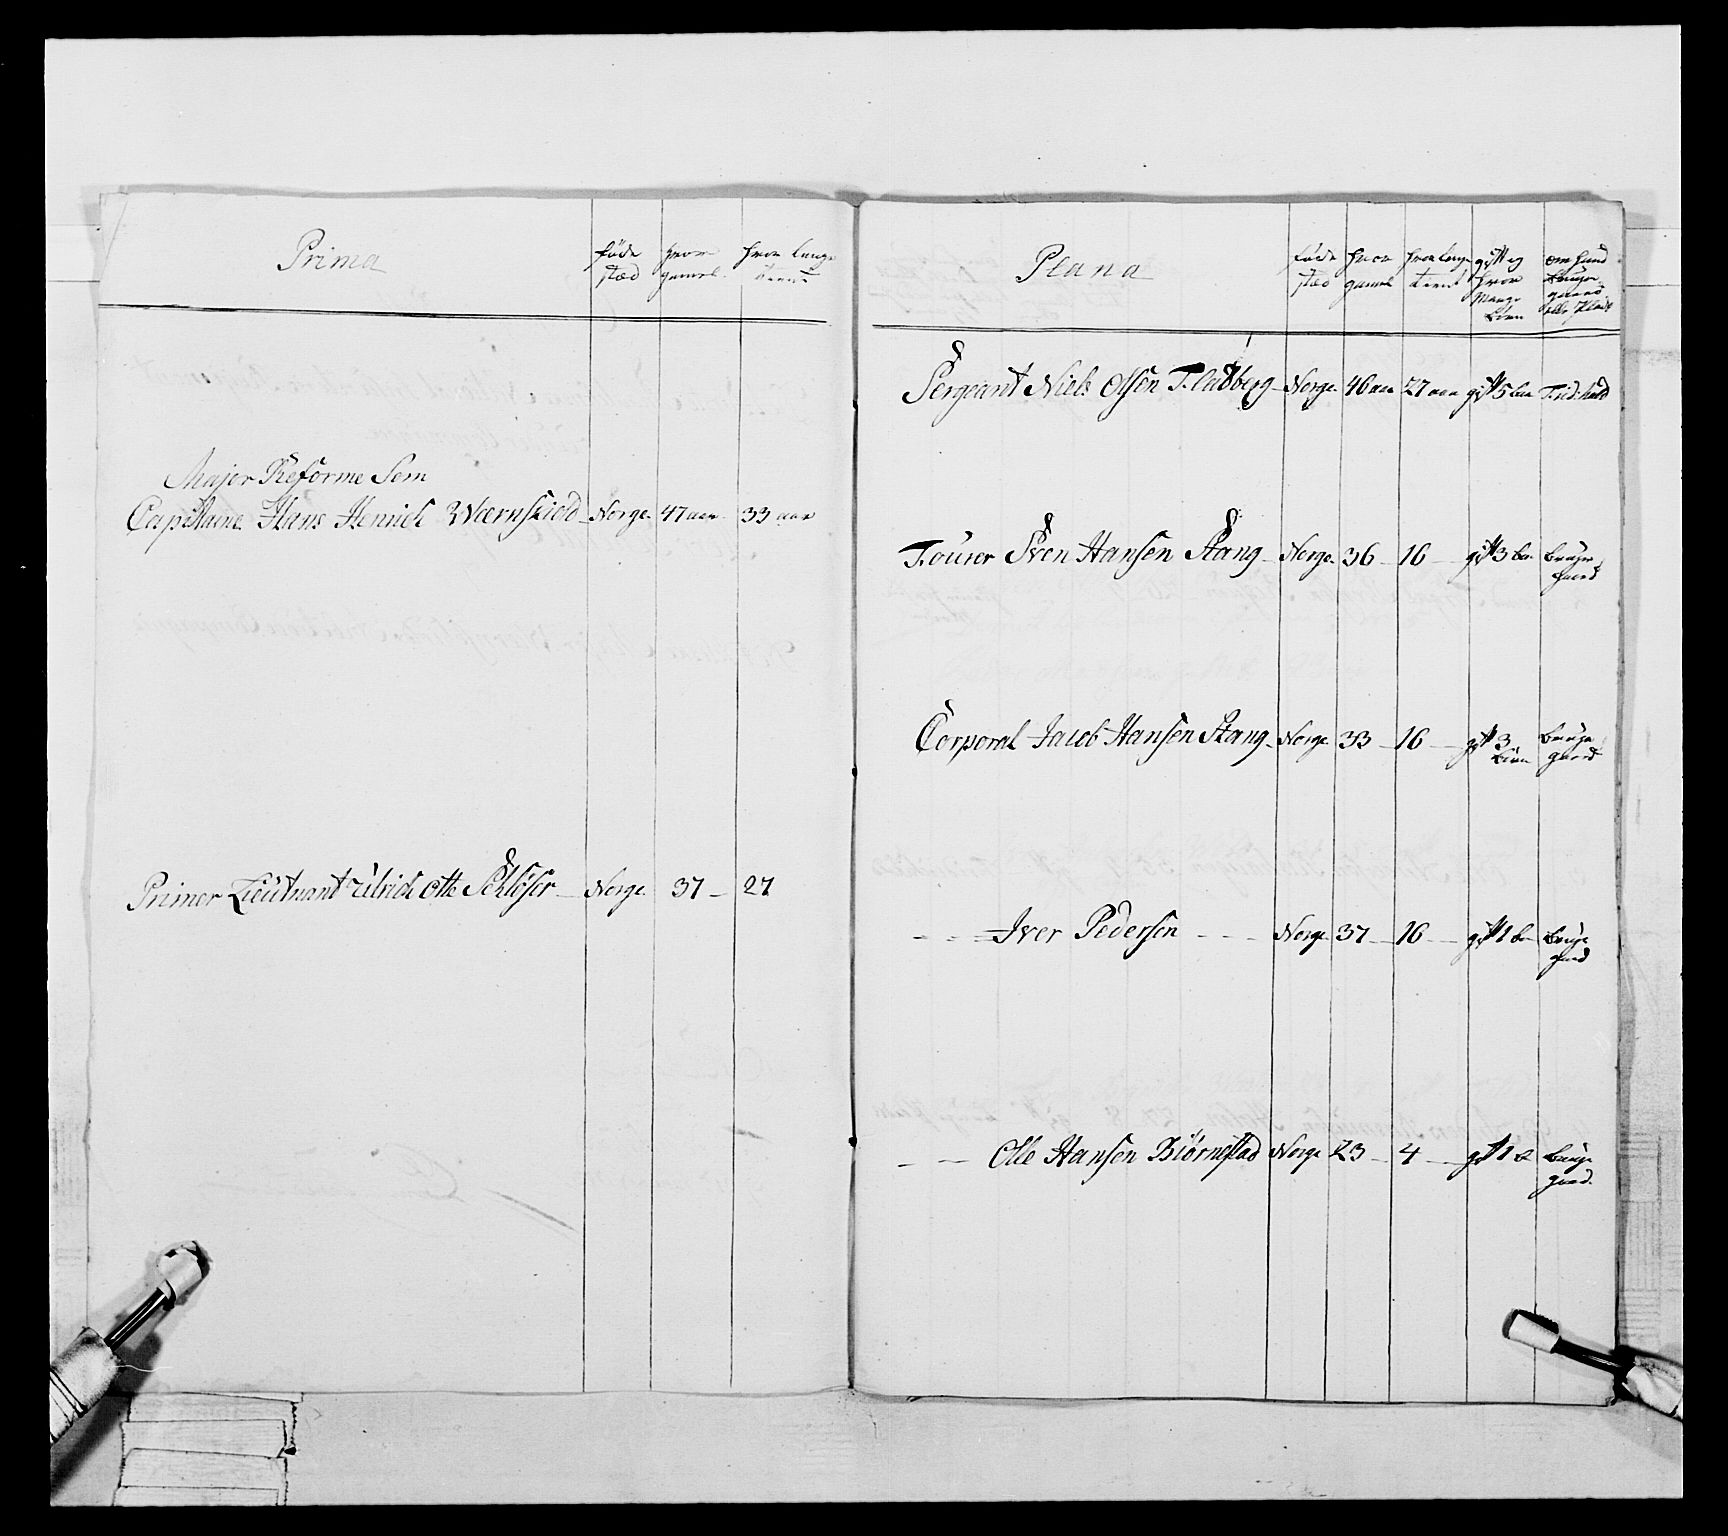 Prima
føde stæd
hvor gamel
hvor lenge tient
Major Reforme Som
Capitaine Hans Henrich Wærnskiold Norge 47 aar 33 aar
Primer Lieutnant Ulrich Otte Schløser Norge 37 27
Plana
føde stæd
hvor gamel
hvor lenge tient
gift og hvor mange børn
om hand bruger gaard eller Plads
Sergeant Niels Olsen Norge 46 aar 27 aar gift 5 bør Fridr:hald
Fourer Sven Hansen Stang Norge 36 16 gift 3 bør bruger gaard
Corporal Jacob Hansen Stang Norge 33 16 gift 3 børn bruger gaard
Iver Pedersen Norge 37 16 gift 1 b bruger gaard
Olle Hansen Biørnstad Norge 23 4 gift 1 b bruger gaard